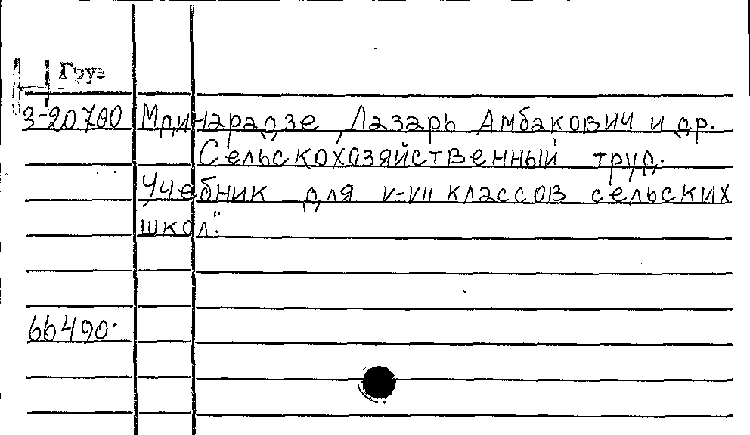 Груз
3-20700 Мдинарадзе, Лазарь Амбакович и др.
Сельскохозяйственный труд.
Учебник для V-VII классов сельских
школ."
66490.